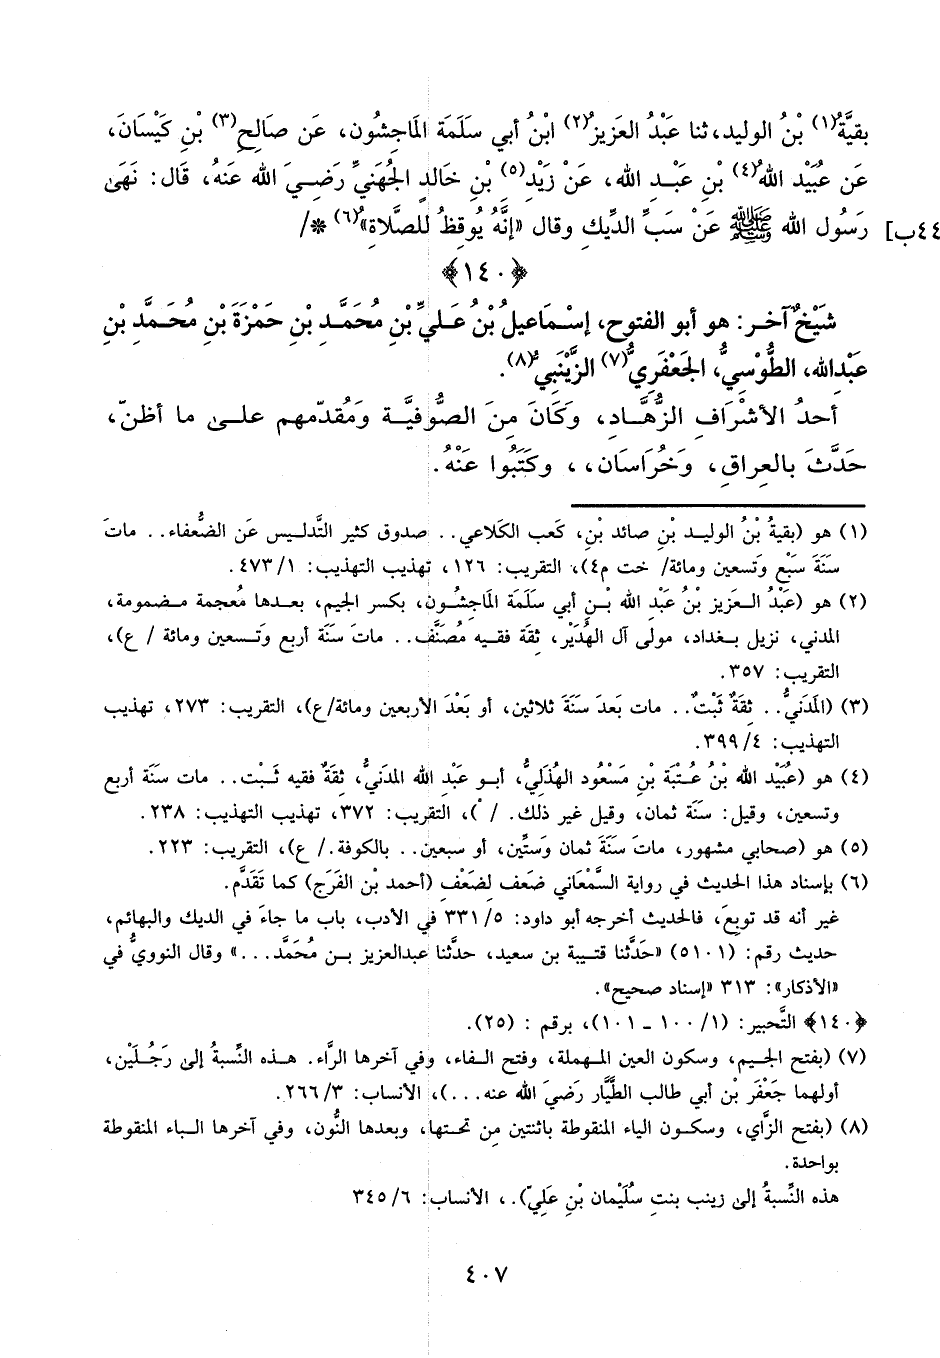 بقيَّةُ(١) بْنُ الوليد، ثنا عَبْدُ العَزيزُ(٢) ابْنُ أبي سَلَمَة المَاجِشُون، عَن صَالِحِ(٣) بْنِ كَيْسَانَ،
عَن عُبَيْد اللهُ(٤) بْنِ عَبْـدِ الله، عَنْ زَيْدِ(٥) بْنِ خَالدٍ الجُهَنيِّ رَضِـيَ الله عَنهُ، قَال: نَهَىٰ
٤٤ب] رَسُول الله ﷺ عَنْ سَبِّ الدِّيكِ وقال «إنَّهُ يُوقظُ للصَّلاةِ»(٦) */
﴿١٤٠﴾
شَيْخٌ آخـر: هو أبو الفتوح، إسْـمَاعيلُ بْنُ عَـليِّ بْنِ مُحَمَّـد بْنِ حَمْزَةَ بْنِ مُحَـمَّد بْنِ
عَبْدالله، الطُّوْسيُّ، الجَعْفَريُّ(٧) الزَّيْنَبيُّ(٨).
أحدُ الأشْرَافِ الزُّهَّـادِ، وَكَانَ مِنَ الصُّوفيَّـة وَمُقدّمهم علـى ما أظنّ،
حَدَّثَ بالعِراقِ، وَخُرَاسَان،، وكَتَبُوا عَنْهُ.
(١) هو (بقيةُ بْنُ الوليـد بْنِ صائد بْنِ، كَعب الكَلاعي.. صدوق كثير التَّدليـس عَن الضُّعفاء.. ماتَ
سَنَةَ سَبْعٍ وتَسعين ومائة/ خت م٤)، التقريب: ١٢٦، تهذيب التهذيب: ٤٧٣/١.
(٢) هو (عَبْدُ الـعَزيز بْنُ عَبْدِ الله بْـنِ أبي سَلَمَة المَاجِشُـون، بكسر الجيم، بعـدها مُعجمة مـضمومة،
المدني، نزيل بـغداد، مولى آل الهُدَيْر، ثقَة فقـيه مُصَنَّف.. ماتَ سَنَة أربع وتَـسعين ومائة / ع)،
التقريب: ٣٥٧.
(٣) (المَدَنيُّ.. ثِقَةٌ ثَبْتٌ.. مات بَعدَ سَنَةَ ثلاثين، أو بَعْدَ الأربعين ومائة/ع)، التقريب: ٢٧٣، تهذيب
التهذيب: ٣٩٩/٤.
(٤) هو (عُبَيْد الله بْنُ عُـتْبَة بْنِ مَسْعُود الهُذَليُّ، أبـو عَبْدِ الله المدَنيُّ، ثِقَةٌ فقيه ثَـبْت.. مات سَنَة أربع
وتسعين، وقيل: سَنَة ثمان، وقيل غير ذلك. / )، التقريب: ٣٧٢، تهذيب التهذيب: ٢٣٨.
(٥) هو (صحابي مشهور، ماتَ سَنَةَ ثمان وَستِّين، أو سبعين.. بالكوفة./ ع)، التقريب: ٢٢٣.
(٦) بإسناد هذا الحديث في رواية السَّمْعَاني ضَعف لضَعْفِ (أحمد بْنِ الفَرَجِ) كما تَقَدَّم.
غير أنه قد توبعَ، فالحديث أخرجه أبو داود: ٣٣١/٥ في الأدب، باب ما جاءَ في الديك والبهائم،
حديث رقم: (٥١٠١) «حَدَّثنا قتـيبة بن سعيد، حدَّثنا عبدالعزيز بـن مُحَمَّد...» وقال النوويُّ في
«الأذكار»: ٣١٣ «إسناد صحيح».
﴿١٤٠﴾ التَّحبير: (١٠٠/١ - ١٠١)، برقم : (٢٥).
(٧) (بفتح الجيم، وسكون العين المـهملة، وفتح الـفاء، وفي آخرها الرَّاء. هـذه النِّسبةُ إلى رَجُـلَيْن،
أولهما جَعْفَر بْن أبي طالب الطَّيَّار رَضيَ الله عنه...)، الأنساب: ٢٦٦/٣.
(٨) (بفتح الزَّاي، وسكـون الياء المنقوطة باثنتين مِن تحـتها، وبعدها النُّون، وفي آخرها الـباء المنقوطة
بواحدة.
هذه النِّسبةُ إلى زينب بنتِ سُلَيْمان بْنِ عَليّ).، الأنساب: ٣٤٥/٦
٤٠٧